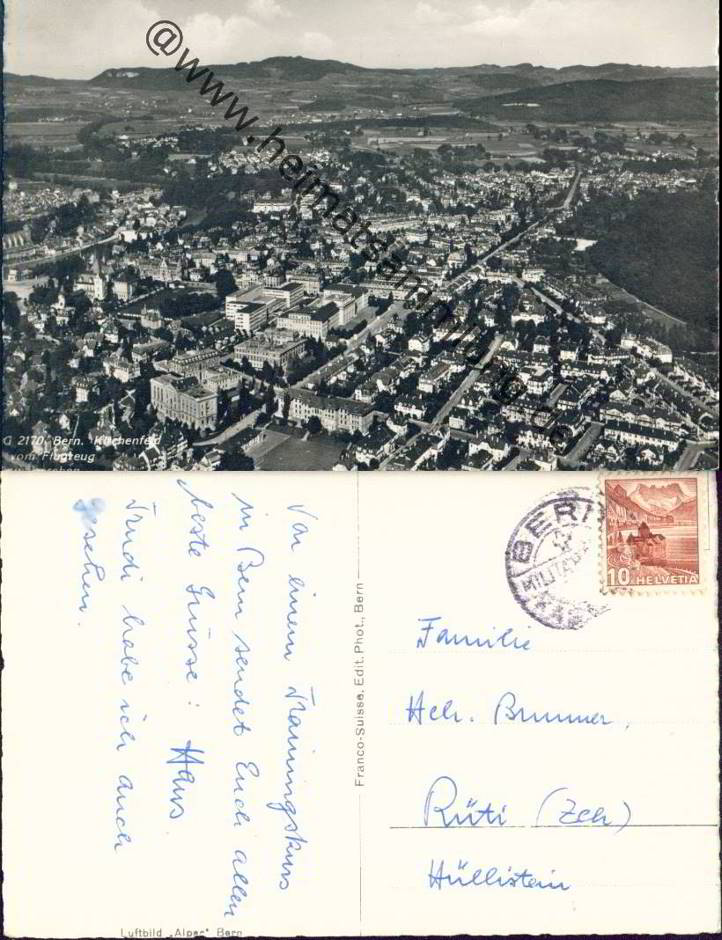 @www.heimatsammlung.de
G 2170. Bern. Kirchenfeld
vom Flugzeug
Von einem Trainingskurs
in Bern sendet Euch allen
beste Grüsse: Hans
Trudi habe ich auch
gesehen.
Luftbild „Alpar" Bern
Franco-Suisse. Edit. Phot., Bern
BERN
10 HELVETIA
Familie
Hch. Brunner,
Rüti (Zch)
Hüllistein